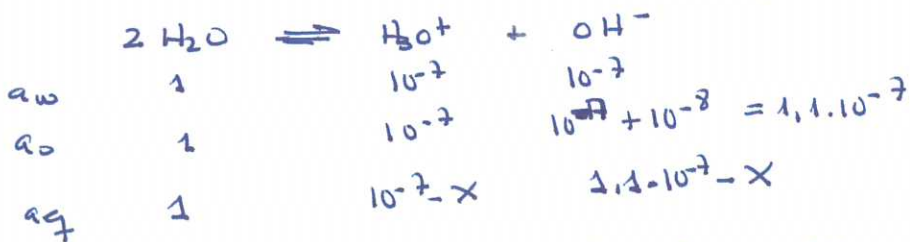 2 H₂O ⇌ H₃O⁺ + OH⁻
aw 1 10⁻⁷ 10⁻⁷
a₀ 1 10⁻⁷ 10⁻⁷ + 10⁻⁸ = 1,1.10⁻⁷
aq 1 10⁻⁷ - x 1,1.10⁻⁷ - x